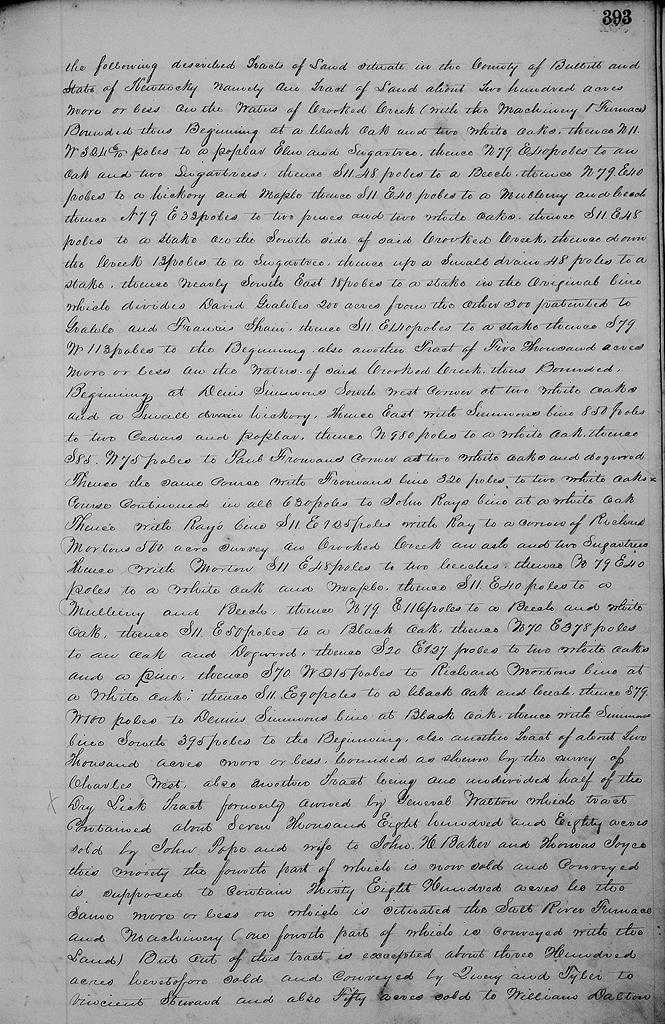 393
the following described Tracts of Land situate in the County of Bullitt and
State of Kentucky namely one Tract of Land about Two hundred acres
more or less on the Waters of Crooked Creek (with the Machinery & Furnace)
Bounded thus Beginning at a black Oak and two white Oaks, thence N11.
W 324 6/10 poles to a poplar Elm and Sugartree, thence N79. E40 poles to an
Oak and two Sugartrees, thence S11. 48 poles to a Beech, thence N79 E40
poles to a hickory and Maple thence S11 E40 poles to a Mulberry and beech
thence N79 E33 poles to two pines and two white Oaks, thence S11. E48
poles to a stake on the South side of said Crooked Creek, thence down
the Creek 13 poles to a Sugartree, thence up a Small drain 48 poles to a
stake, thence nearly South East 18 poles to a stake in the Original line
which divides David 200 acres from the Other 300 patented to
and Francis Shain, thence S11. E140 poles to a stake thence S79
W 113 poles to the Beginning, also another Tract of Five Thousand acres
more or less on the Waters of said Crooked Creek, thus Bounded.
Beginning at Denis Simmons South West Corner at two white Oaks
and a Small drain hickory, thence East with Simmons line 880 poles
to two Cedars and poplar, thence N 980 poles to a white Oak, thence
S85. W75 poles to Paul Fromans Corner at two white Oaks and dogwood
Thence the same Course with Fromans line 320 poles, to two white Oaks x
Course Continued in all 630 poles to John Rays line at a white Oak
Thence with Ray's line S11 E125 poles with Ray to a corner of Richard
Mortons 500 acre survey on Crooked Creek an ash and two Sugartrees
thence with Morton S11 E48 poles to two beeches, thence N79 E40
poles to a white Oak and Maple, thence S11. E40 poles to a
Mulberry and Beech, thence N79 E116 poles to a Beech and white
Oak, thence S11. E50 poles to a Black Oak, thence N70. E378 poles
to an Oak and Dogwood, thence S20 E127 poles to two white Oaks
and a Pine, thence S70. W215 poles to Richard Mortons line at
a White Oak; thence S11. E90 poles to a black Oak and beech, thence S79.
W100 poles to Dennis Simmons line at Black Oak, thence with Simmons
line South 395 poles to the Beginning, also another Tract of about Two
Thousand acres more or less, bounded as shown by the survey of
Charles West, also another Tract being one undivided half of the
X Dry Lick Tract formerly owned by General Walton which tract
Contained about Seven Thousand Eight hundred and Eighty acres
sold by John Pope and wife to John. H Baker and Thomas Joyce
this moiety the fourth part of which is now sold and Conveyed
is supposed to Contain Thirty Eight Hundred acres be the
Same more or less on which is situated the Salt River Furnace
and Machinery (one fourth part of which is conveyed with the
Land) But out of this tract is excepted about three Hundred
acres heretofore sold and Conveyed by Quey and Tyler to
Vincient Steward and also Fifty acres sold to William Dalton